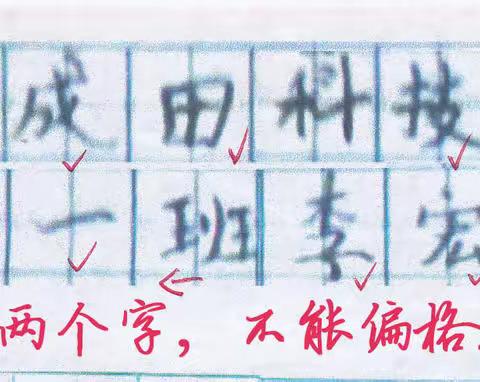 成田科技
一班李宏
两个字，不能偏格